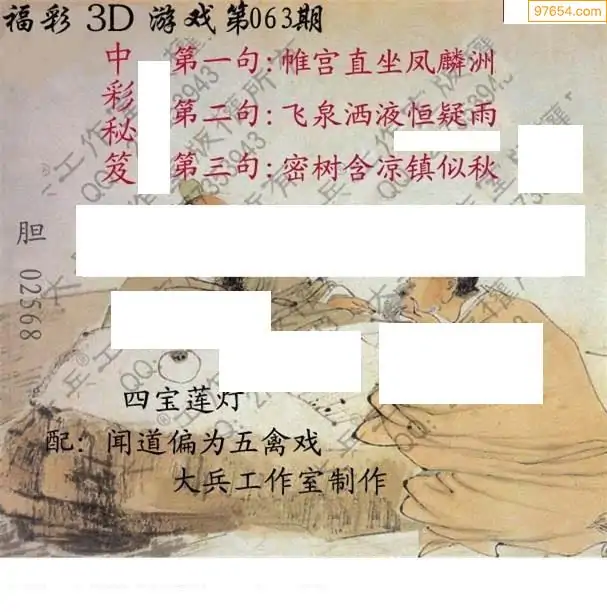 97654.com
福彩 3D 游戏第063期
中彩秘笈
第一句:帷宫直坐凤麟洲
第二句:飞泉洒液恒疑雨
第三句:密树含凉镇似秋
胆 02568
四宝莲灯
配:闻道偏为五禽戏
大兵工作室制作